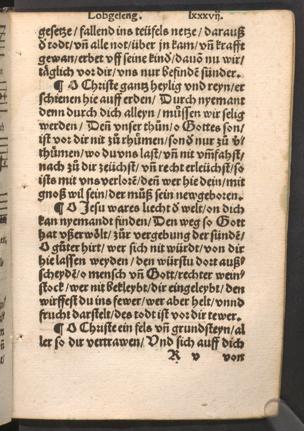 Lobgeseng. lxxxvij.
gesetze/ fallend ins teüfels netze/ darauß
d̄ todt/ vn̄ alle not/ über jn kam/ vn̄ krafft
gewan/ erbet vff seine kind/ dauō nu wir/
täglich vor dir/ vns nur befinde sünder.
¶ O Christe gantz heylig vnd reyn/ er
schienen hie auff erden/ Durch nyemant
denn durch dich alleyn/ müssen wir selig
werden/ Deñ vnser thůn/ o Gottes son/
ist vor dir nit zů rhümen/ sond̄ nur zů v̄
thümen/ wo du vns last/ vn̄ nit vm̄fahst/
nach zů dir zeüchst/ vn̄ recht erleüchst/ so
ists mit vns verlorē/ deñ wer hie dein/ mit
gnoß wil sein/ der můß sein new geboren.
¶ O Jesu wares liecht d̄ welt/ on dich
kan nyemandt finden/ Den weg so Gott
hat vßerwölt/ zůr vergebung der sünde/
O gůter hirt/ wer sich nit würdt/ von dir
hie lassen weyden/ den würstu dort auß
scheydē/ o mensch vn̄ Gott/ rechter wein
stock/ wer nit bekleybt/ dir eingeleybt/ den
wirffest du ins fewer/ wer aber helt/ vnnd
frucht darstelt/ des todt ist vor dir tewer.
¶ O Christe ein fels vn̄ grundsteyn/ al
ler so dir vertrawen/ Vnd sich auff dich
R v von